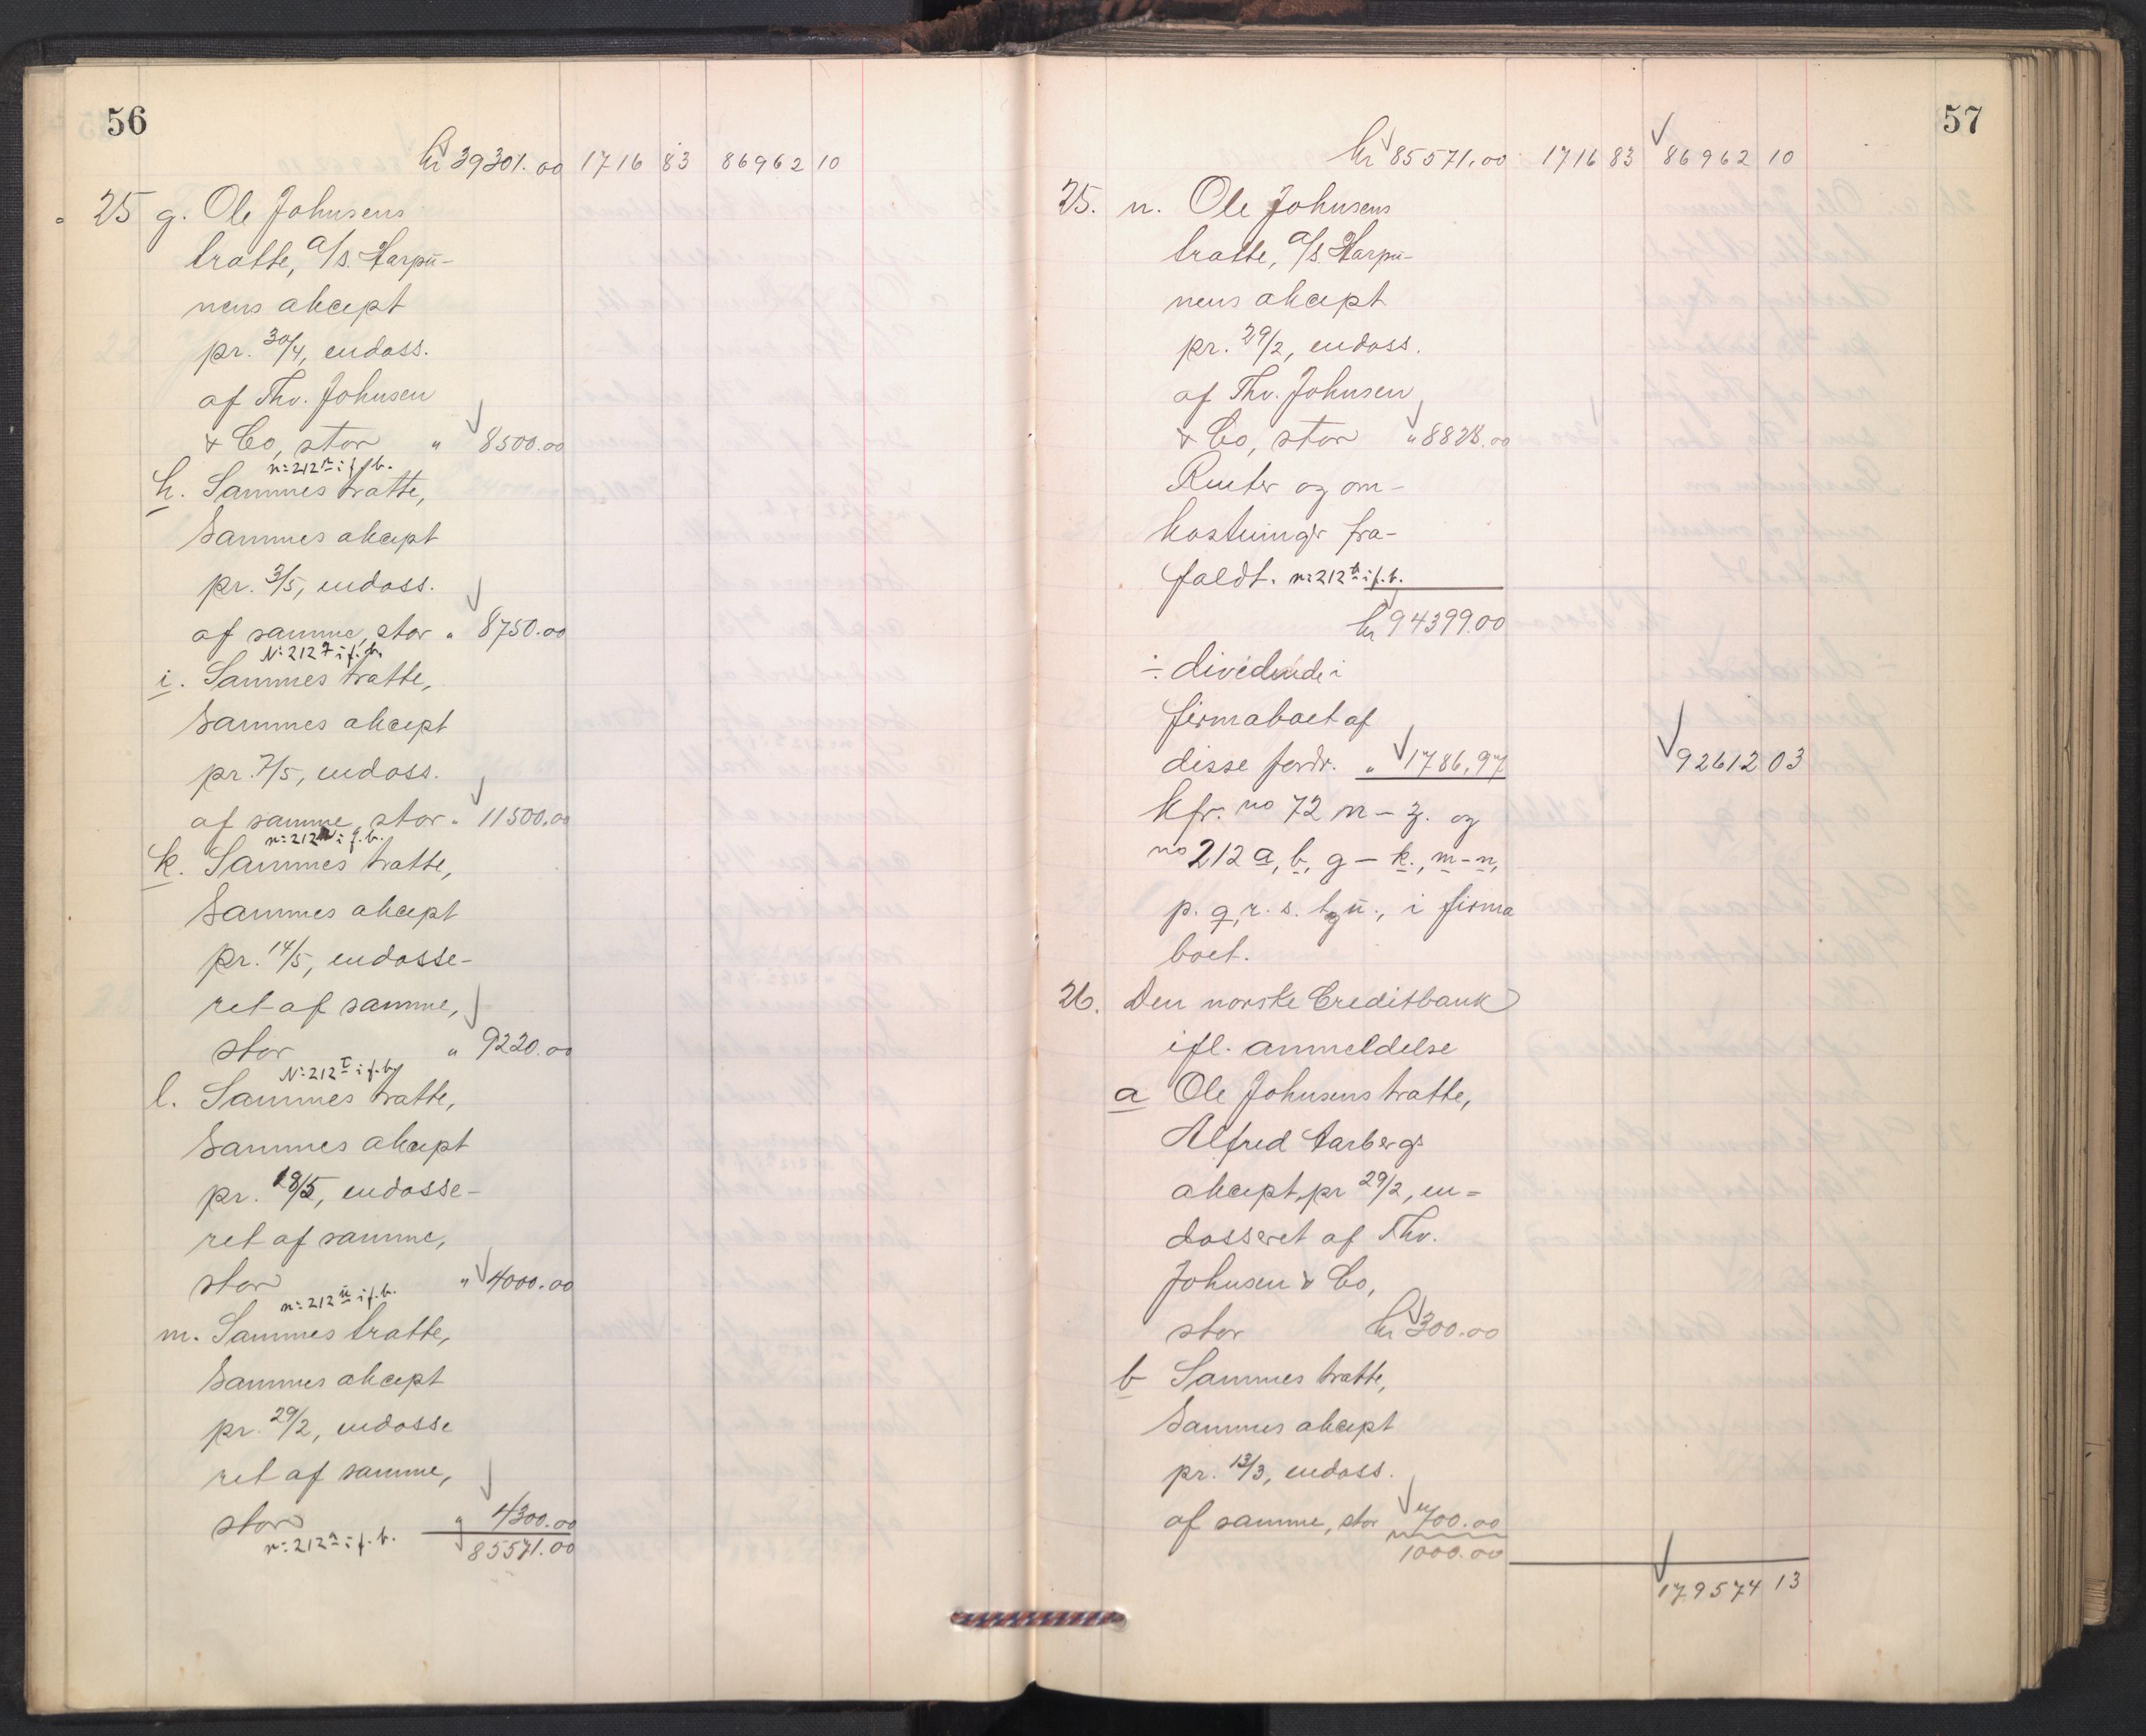 56
kr 39301.00 1716 83 86962 10
25 g. Ole Johnsens
tratte, a/s. Harpu-
nens akcept
pr. 30/4, endoss.
af Thv. Johnsen
& Co, stor " 8500.00
n: 212 p i f.b.
h. Sammes tratte,
sammes akcept
pr. 3/5, endoss.
af samme, stor " 8750.00
N: 212 q i f.b.
i. Sammes tratte,
sammes akcept
pr. 7/5, endoss.
af samme, stor " 11500.00
n: 212 i f.b.
k. Sammes tratte,
sammes akcept
pr. 14/5, endosse-
ret af samme,
stor " 9220.00
N: 212 t i f.b.
l. Sammes tratte,
sammes akcept
pr. 18/5, endosse-
ret af samme,
stor " 4000.00
n: 212 u i f.b.
m. Sammes tratte,
sammes akcept
pr. 29/2, endosse
ret af samme,
stor " 4300.00
n: 212 a i f.b. 85571.00
57
kr 85571.00 1716 83 86962 10
25. n. Ole Johnsens
tratte, a/s. Harpu-
nens akcept
pr. 29/2, endoss.
af Thv. Johnsen
& Co, stor " 8828.00
Renter og om-
kostninger fra-
faldt. n: 212 b i f.b.
kr 94399.00
÷ dividende i
firmaboet af
disse fordr. " 1786,97 92612 03
kfr. no 72 m – z. og
no 212 a, b, g – k., m – n,
p. q, r. s. t og u., i firma
boet.
26. Den norske Creditbank
ifl. anmeldelse
a Ole Johnsens tratte,
Alfred Aarbergs
akcept, pr 29/2, en-
dosseret af Thv.
Johnsen & Co,
stor kr 300.00
b Sammes tratte,
sammes akcept
pr. 13/3, endoss.
af samme, stor " 700.00
1000.00
179574 13